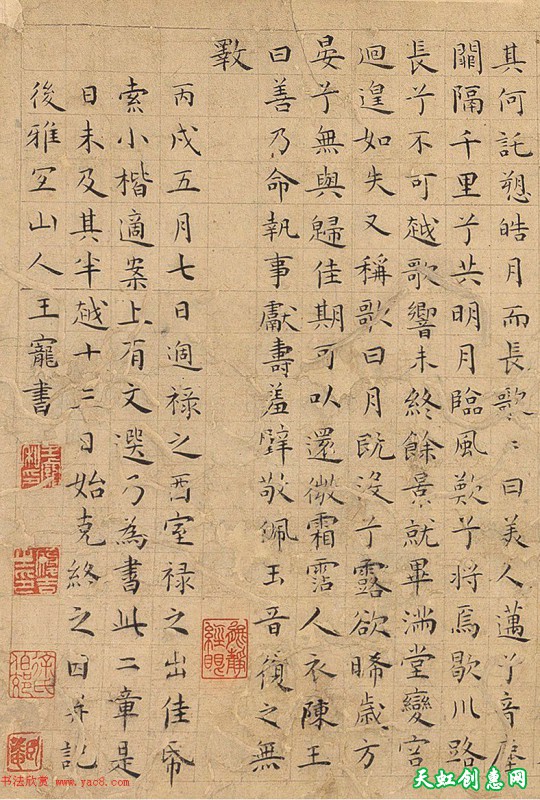 其何託愬皓月而長歌〻曰美人邁兮音塵
闕隔千里兮共明月臨風歎兮將焉歇川路
長兮不可越歌響未終餘景就畢滿堂變容
迴遑如失又稱歌曰月既沒兮露欲晞歲方
晏兮無與歸佳期可以還微霜霑人衣陳王
曰善乃命執事獻壽羞璧敬佩玉音復之無
斁
丙戌五月七日過祿之西室祿之出佳帋
索小楷適案上有文選乃為書此二章是
日未及其半越十三日始克終之因并記
後雅宜山人王寵書
书法欣赏 www.yac8.com
天虹创意网